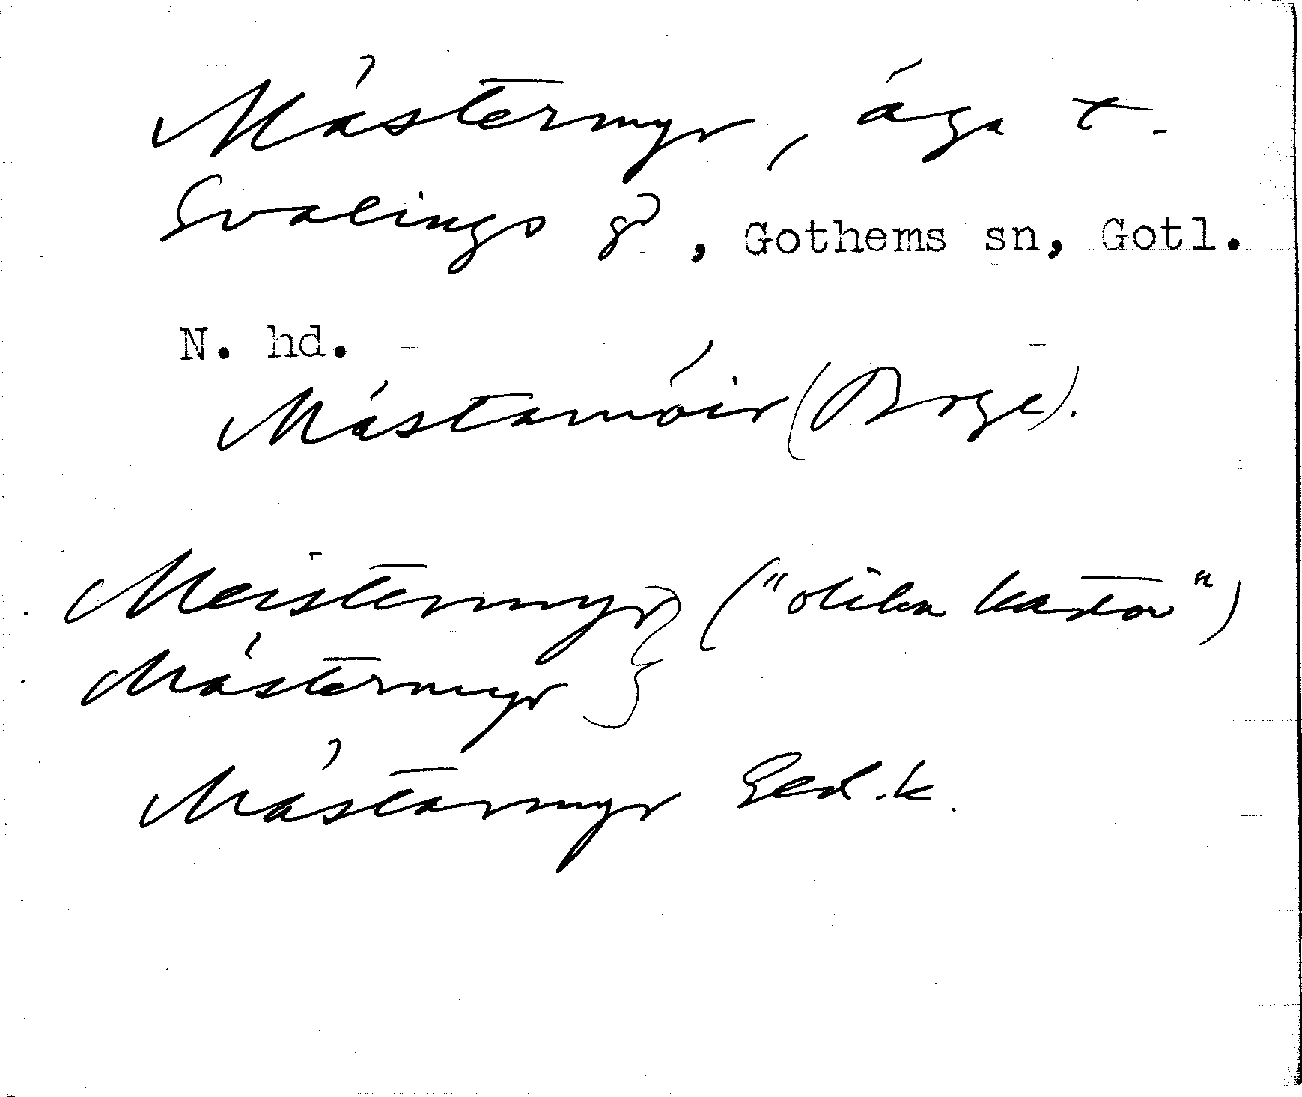 Måstermyr, äga t.
Svalings gd, Gothems sn, Gotl.
N. hd.
Mástamóir (Borge).
Meistermyr } ("olika kartor")
Måstermyr }
Måstarmyr Ged.k.